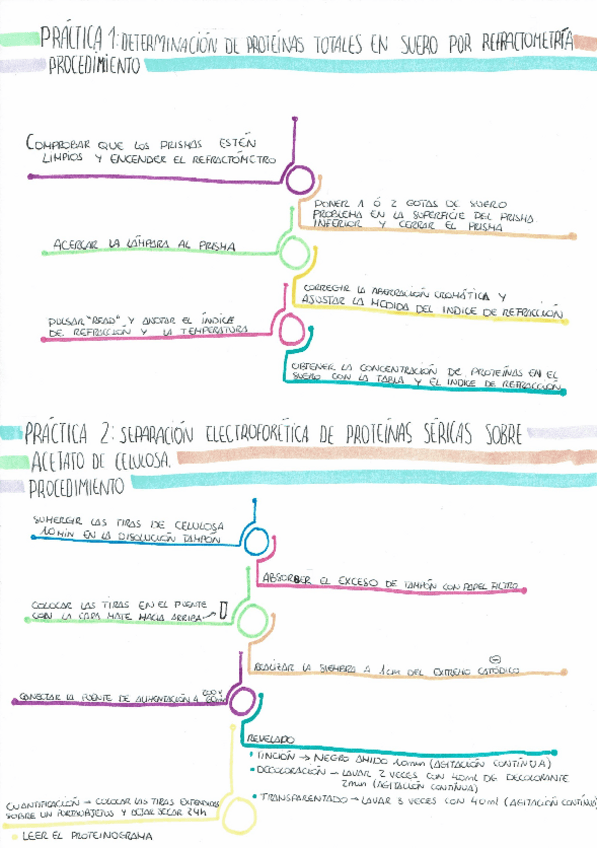 PRÁCTICA 1: DETERMINACIÓN DE PROTEÍNAS TOTALES EN SUERO POR REFRACTOMETRÍA
PROCEDIMIENTO
COMPROBAR QUE LOS PRISMAS ESTÉN
LIMPIOS Y ENCENDER EL REFRACTÓMETRO
PONER 1 Ó 2 GOTAS DE SUERO
PROBLEMA EN LA SUPERFICIE DEL PRISMA
INFERIOR Y CERRAR EL PRISMA
ACERCAR LA LÁMPARA AL PRISMA
CORREGIR LA ABERRACIÓN CROMÁTICA Y
AJUSTAR LA MEDIDA DEL INDICE DE REFRACCIÓN
PULSAR "READ" Y ANOTAR EL ÍNDICE
DE REFRACCION Y LA TEMPERATURA
OBTENER LA CONCENTRACIÓN DE PROTEÍNAS EN EL
SUERO CON LA TABLA Y EL INDICE DE REFRACCIÓN
PRÁCTICA 2: SEPARACIÓN ELECTROFORÉTICA DE PROTEÍNAS SÉRICAS SOBRE
ACETATO DE CELULOSA.
PROCEDIMIENTO
SUMERGIR LAS TIRAS DE CELULOSA
10 MIN EN LA DISOLUCIÓN TAMPÓN
ABSORBER EL EXCESO DE TAMPÓN CON PAPEL FILTRO
COLOCAR LAS TIRAS EN EL PUENTE
CON LA CAPA MATE HACIA ARRIBA →
REALIZAR LA SIEMBRA A 1cm DEL EXTREMO CATÓDICO ⊖
CONECTAR LA FUENTE DE ALIMENTACIÓN A 200 V
REVELADO
• TINCIÓN → NEGRO AMIDO 10min (AGITACIÓN CONTÍNUA)
• DECOLORACIÓN → LAVAR 2 VECES CON 40ml DE DECOLORANTE
2min (AGITACIÓN CONTÍNUA)
• TRANSPARENTADO → LAVAR 3 VECES CON 40ml (AGITACIÓN CONTÍNUA
CUANTIFICACIÓN → COLOCAR LAS TIRAS EXTENDIDAS
SOBRE UN PORTAOBJETOS Y DEJAR SECAR 24h
• LEER EL PROTEINOGRAMA